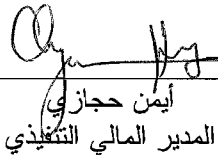 أيمن حجازي
المدير المالي التنفيذي